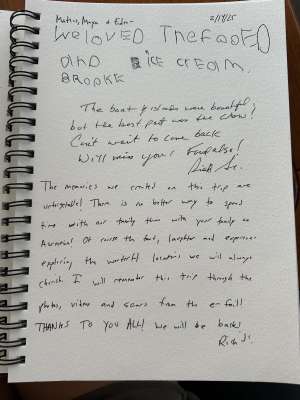 2/19/25
WE LOVED THE FOOED
AND ICE CREAM.
BROOKE
The boat & islands were beautiful;
but the best part was the crew!
Can't wait to come back
Will miss you!
Rich Sr.
The memories we created on this trip are
unforgettable! There is no better way to spend
time with our family then with your family on
Of course the food, laughter and experience
exploring the wonderful locations we will always
cherish. I will remember this trip through the
photos, video and scars from the e-foil!
THANKS TO YOU ALL! We will be back!
Rich Jr.